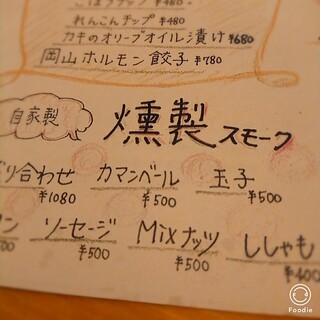 ごぼうチップ ¥480
れんこんチップ ¥480
カキのオリーブオイル漬け ¥680
岡山ホルモン餃子 ¥780
自家製
燻製スモーク
り合わせ カマンベール 玉子
¥1080 ¥500 ¥500
ン ソーセージ Mixナッツ ししゃも
¥500 ¥500 ¥400
Foodie